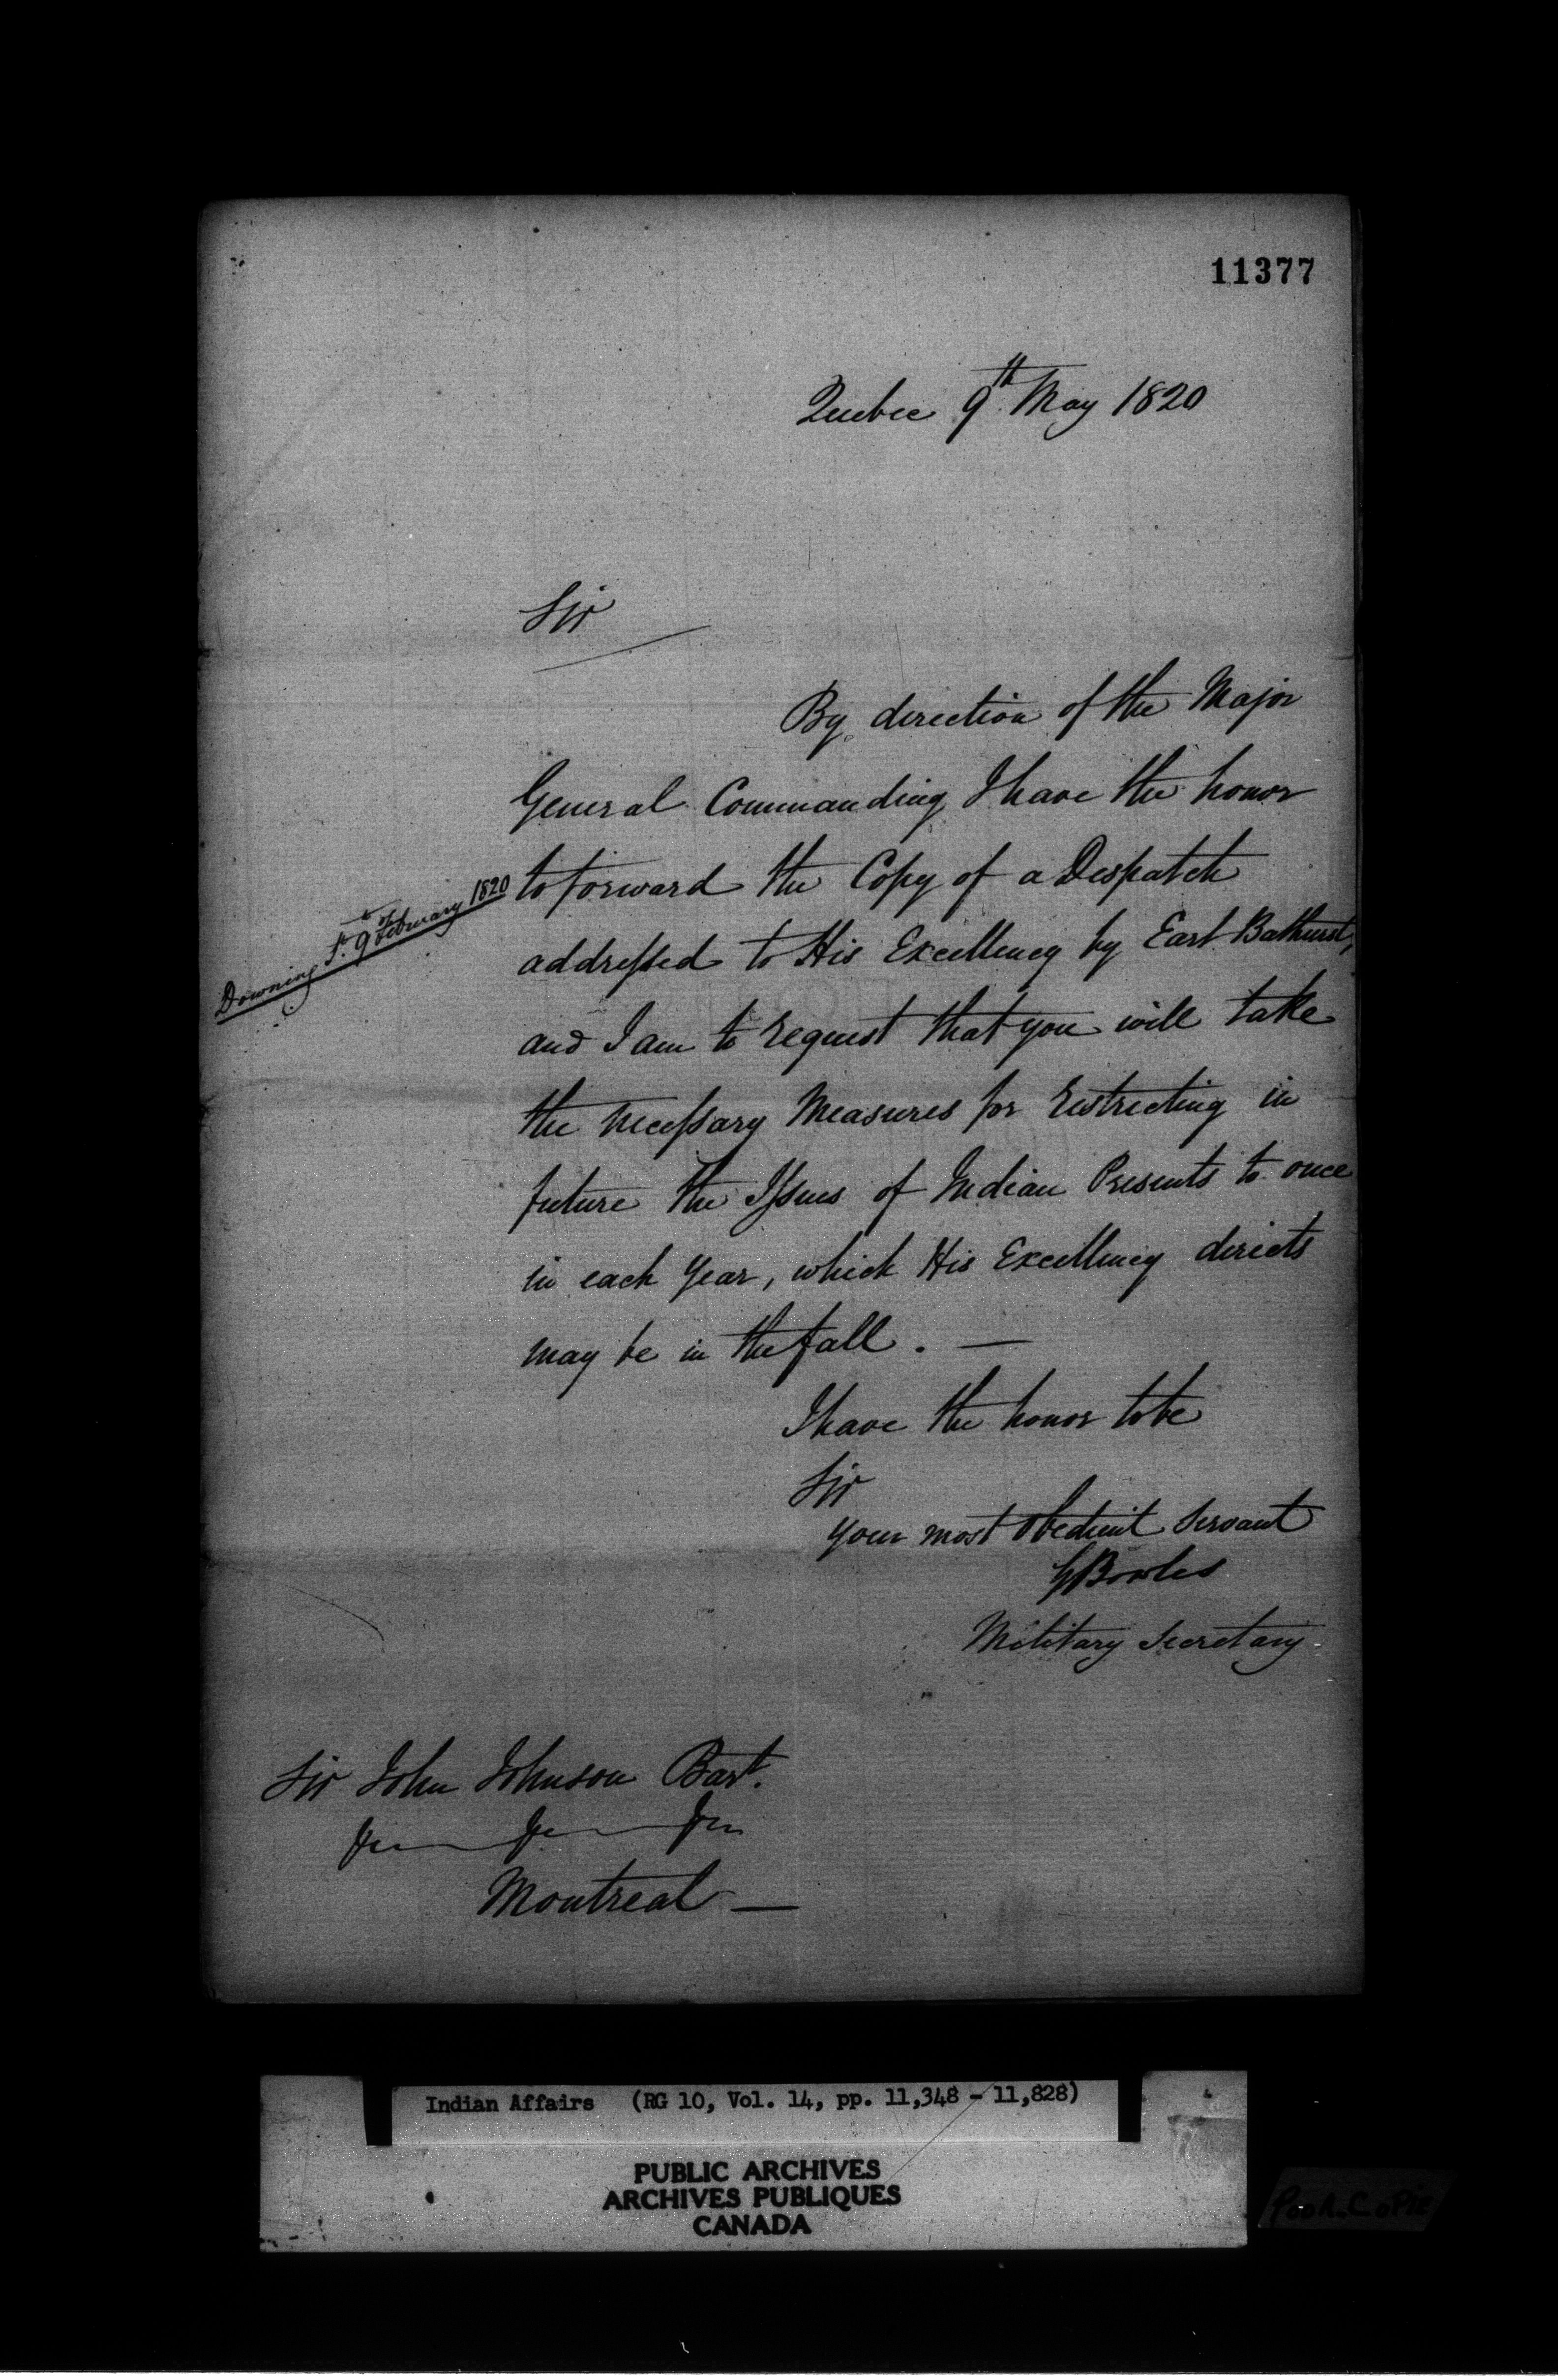 11377
Quebec 9th May 1820
Sir
By direction of the Major
General Commanding I have the honor
to forward the Copy of a Despatch
Downing St. 9th February 1820
addressed to His Excellency by Earl Bathurst,
and I am to request that you will take
the necessary Measures for restricting in
future the Issues of Indian Presents to once
in each Year, which His Excellency directs
may be in the fall. —
I have the honor to be
Sir
Your most obedient Servant
GBowles
Military Secretary
Sir John Johnson Bart.
Montreal —
Indian Affairs (RG 10, Vol. 14, pp. 11,348 - 11,828)
PUBLIC ARCHIVES
ARCHIVES PUBLIQUES
CANADA